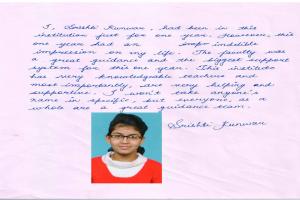 I, Srishti Kunwar, had been in this
institution just for one year. However, this
one year had an indelible
impression on my life. The faculty was
a great guidance and the biggest support
system for this one year. This institute
has very knowledgable teachers and
most importantly, are very helping and
supportive. I won't take anyone's
name in specific, but everyone, as a
whole are a great guidance team.
Srishti Kunwar